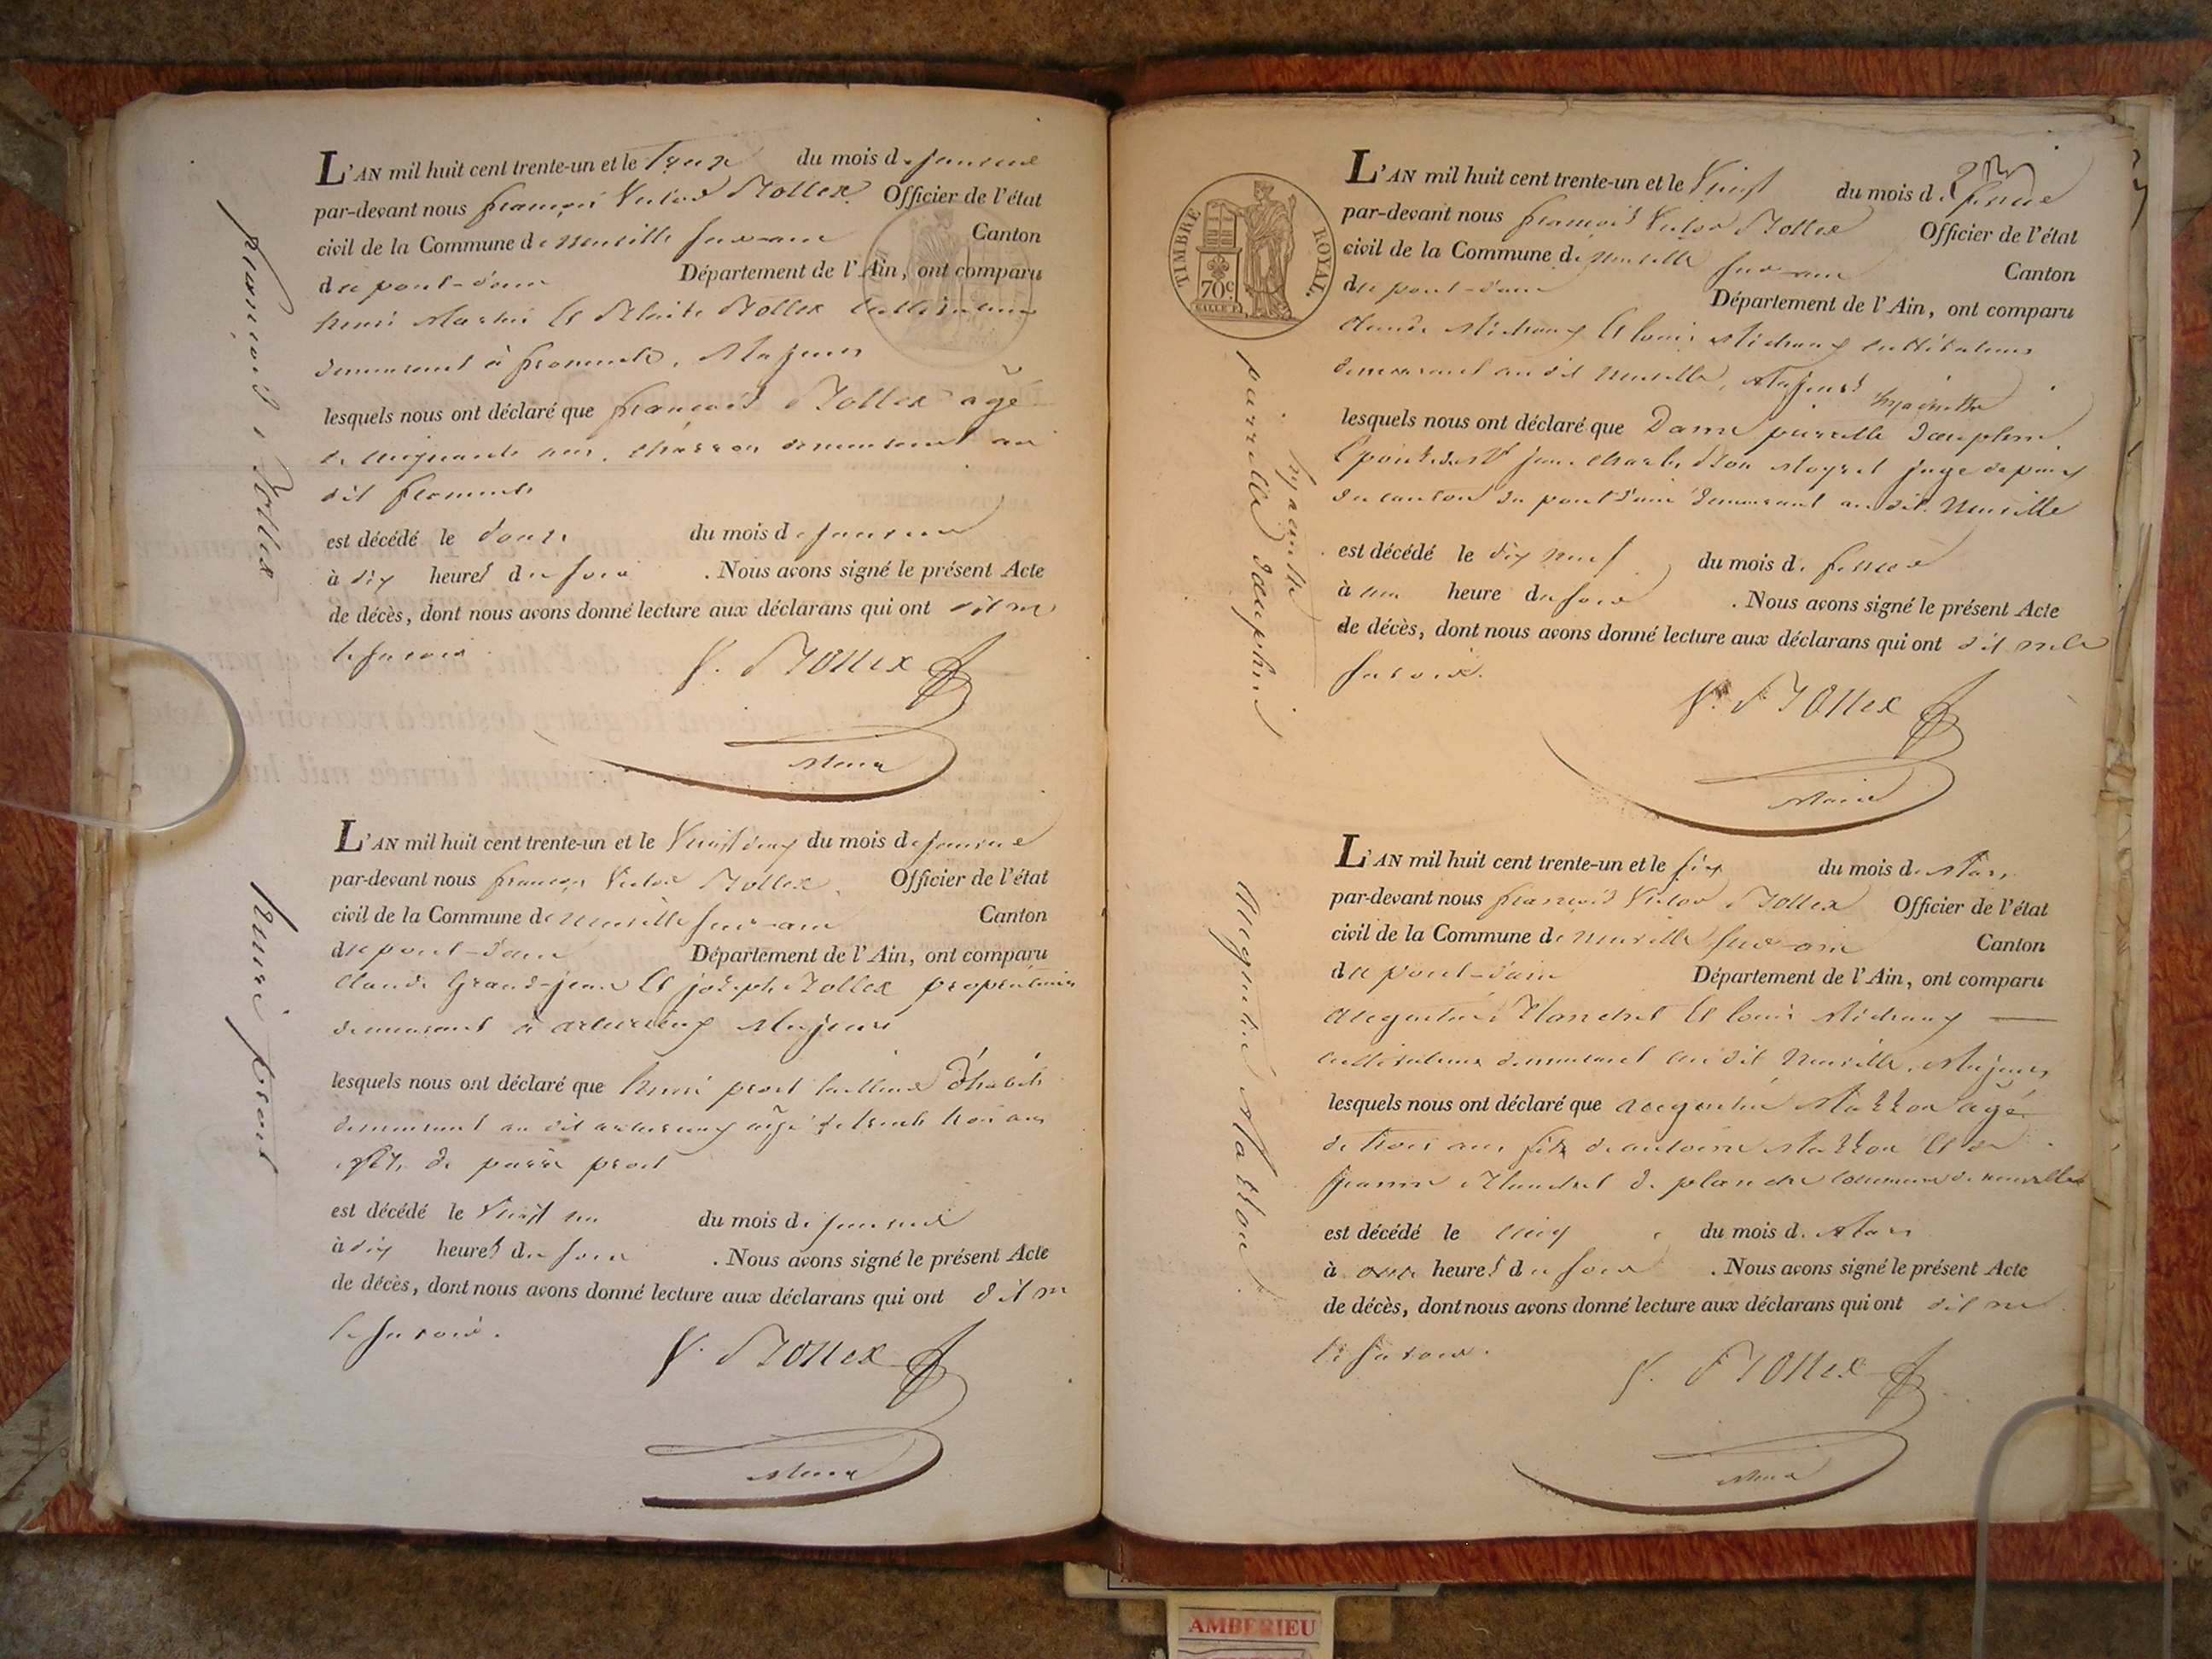 L'AN mil huit cent trente-un et le Treize du mois de janvier
par-devant nous françois Victor Bollex Officier de l'état
civil de la Commune de Neuville sur-ain Canton
de pont-d'ain Département de l'Ain, ont comparu
henri Martin et Bollex cultivateurs
demeurant à fromente, Majeurs
lesquels nous ont déclaré que françois Bollex agé
de cinquante ans, demeurant au
dit fromente
est décédé le douze du mois de janvier
à dix heures du soir . Nous avons signé le présent Acte
de décès, dont nous avons donné lecture aux déclarans qui ont dit ne
le savoir
V. Bollex
Maire
françois Bollex
L'AN mil huit cent trente-un et le Vingt deux du mois de janvier
par-devant nous françois Victor Bollex Officier de l'état
civil de la Commune de Neuville sur-ain Canton
de pont-d'ain Département de l'Ain, ont comparu
Claude Grand-jean et joseph Bollex propriétaires
demeurant à Majeurs
lesquels nous ont déclaré que henri prost tailleur d'habits
demeurant au dit agé de trente trois ans
de pierre prost
est décédé le Vingt un du mois de janvier
à dix heures du soir . Nous avons signé le présent Acte
de décès, dont nous avons donné lecture aux déclarans qui ont dit ne
le savoir.
V. Bollex
Maire
henri prost
TIMBRE ROYAL.
70c
L'AN mil huit cent trente-un et le Vingt du mois de fevrier
par-devant nous françois Victor Bollex Officier de l'état
civil de la Commune de Neuville sur-ain Canton
de pont-d'ain Département de l'Ain, ont comparu
Claude Michaux et louis Michaux cultivateurs
demeurant au dit Neuville, Majeurs
lesquels nous ont déclaré que Dame pierrette dauphin
Epouse de Sr jean Charles Moyret juge de paix
du canton du pont d'ain demeurant au dit Neuville
est décédé le dix neuf du mois de fevrier
à un heure du soir . Nous avons signé le présent Acte
de décès, dont nous avons donné lecture aux déclarans qui ont dit ne le
savoir.
V. Bollex
Maire
pierrette dauphin
L'AN mil huit cent trente-un et le six du mois de Mars
par-devant nous françois Victor Bollex Officier de l'état
civil de la Commune de Neuville sur-ain Canton
de pont-d'ain Département de l'Ain, ont comparu
Augustin Blanchet et louis Michaux
cultivateurs demeurant au dit Neuville, Majeurs
lesquels nous ont déclaré que augustin Mazzon agé
de trois ans fils de antoine Mazzon et de
jeanne Blanchet de planche commune de neuville
est décédé le cinq du mois de Mars
à onze heures du soir . Nous avons signé le présent Acte
de décès, dont nous avons donné lecture aux déclarans qui ont dit ne
le savoir.
V. Bollex
Maire
Augustin Mazzon
AMBERIEU